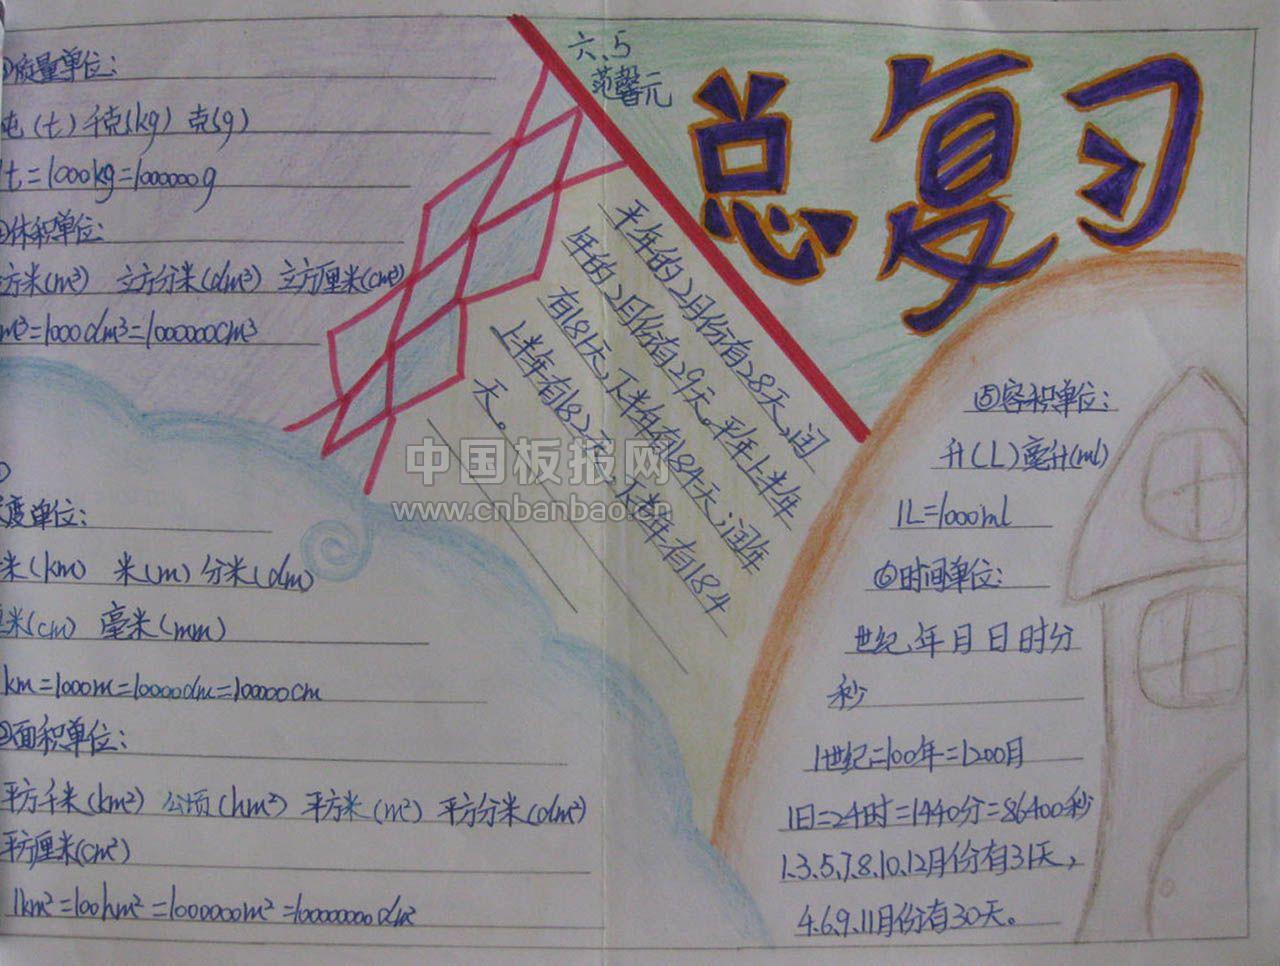 总复习
六.5
范馨元
质量单位:
吨(t) 千克(kg) 克(g)
t=1000kg=1000000g
体积单位:
方米(m³) 立方分米(dm³) 立方厘米(cm³)
m³=1000dm³=1000000cm³
度单位:
米(km) 米(m) 分米(dm)
米(cm) 毫米(mm)
km=1000m=10000dm=100000cm
②面积单位:
平方千米(km²) 公顷(hm²) 平方米(m²) 平方分米(dm²)
平方厘米(cm²)
1km²=100hm²=1000000m²=100000000dm²
平年的2月份有28天,闰
年的2月份有29天。平年上半年
有181天,下半年有184天;闰年
上半年有182天,下半年有184
天。
⑤容积单位:
升(L)毫升(ml)
1L=1000ml
⑥时间单位:
世纪、年 月 日 时 分
秒
1世纪=100年=1200月
1日=24时=1440分=86400秒
1.3.5.7.8.10.12月份有31天,
4.6.9.11月份有30天。
中国板报网
www.cnbanbao.cn